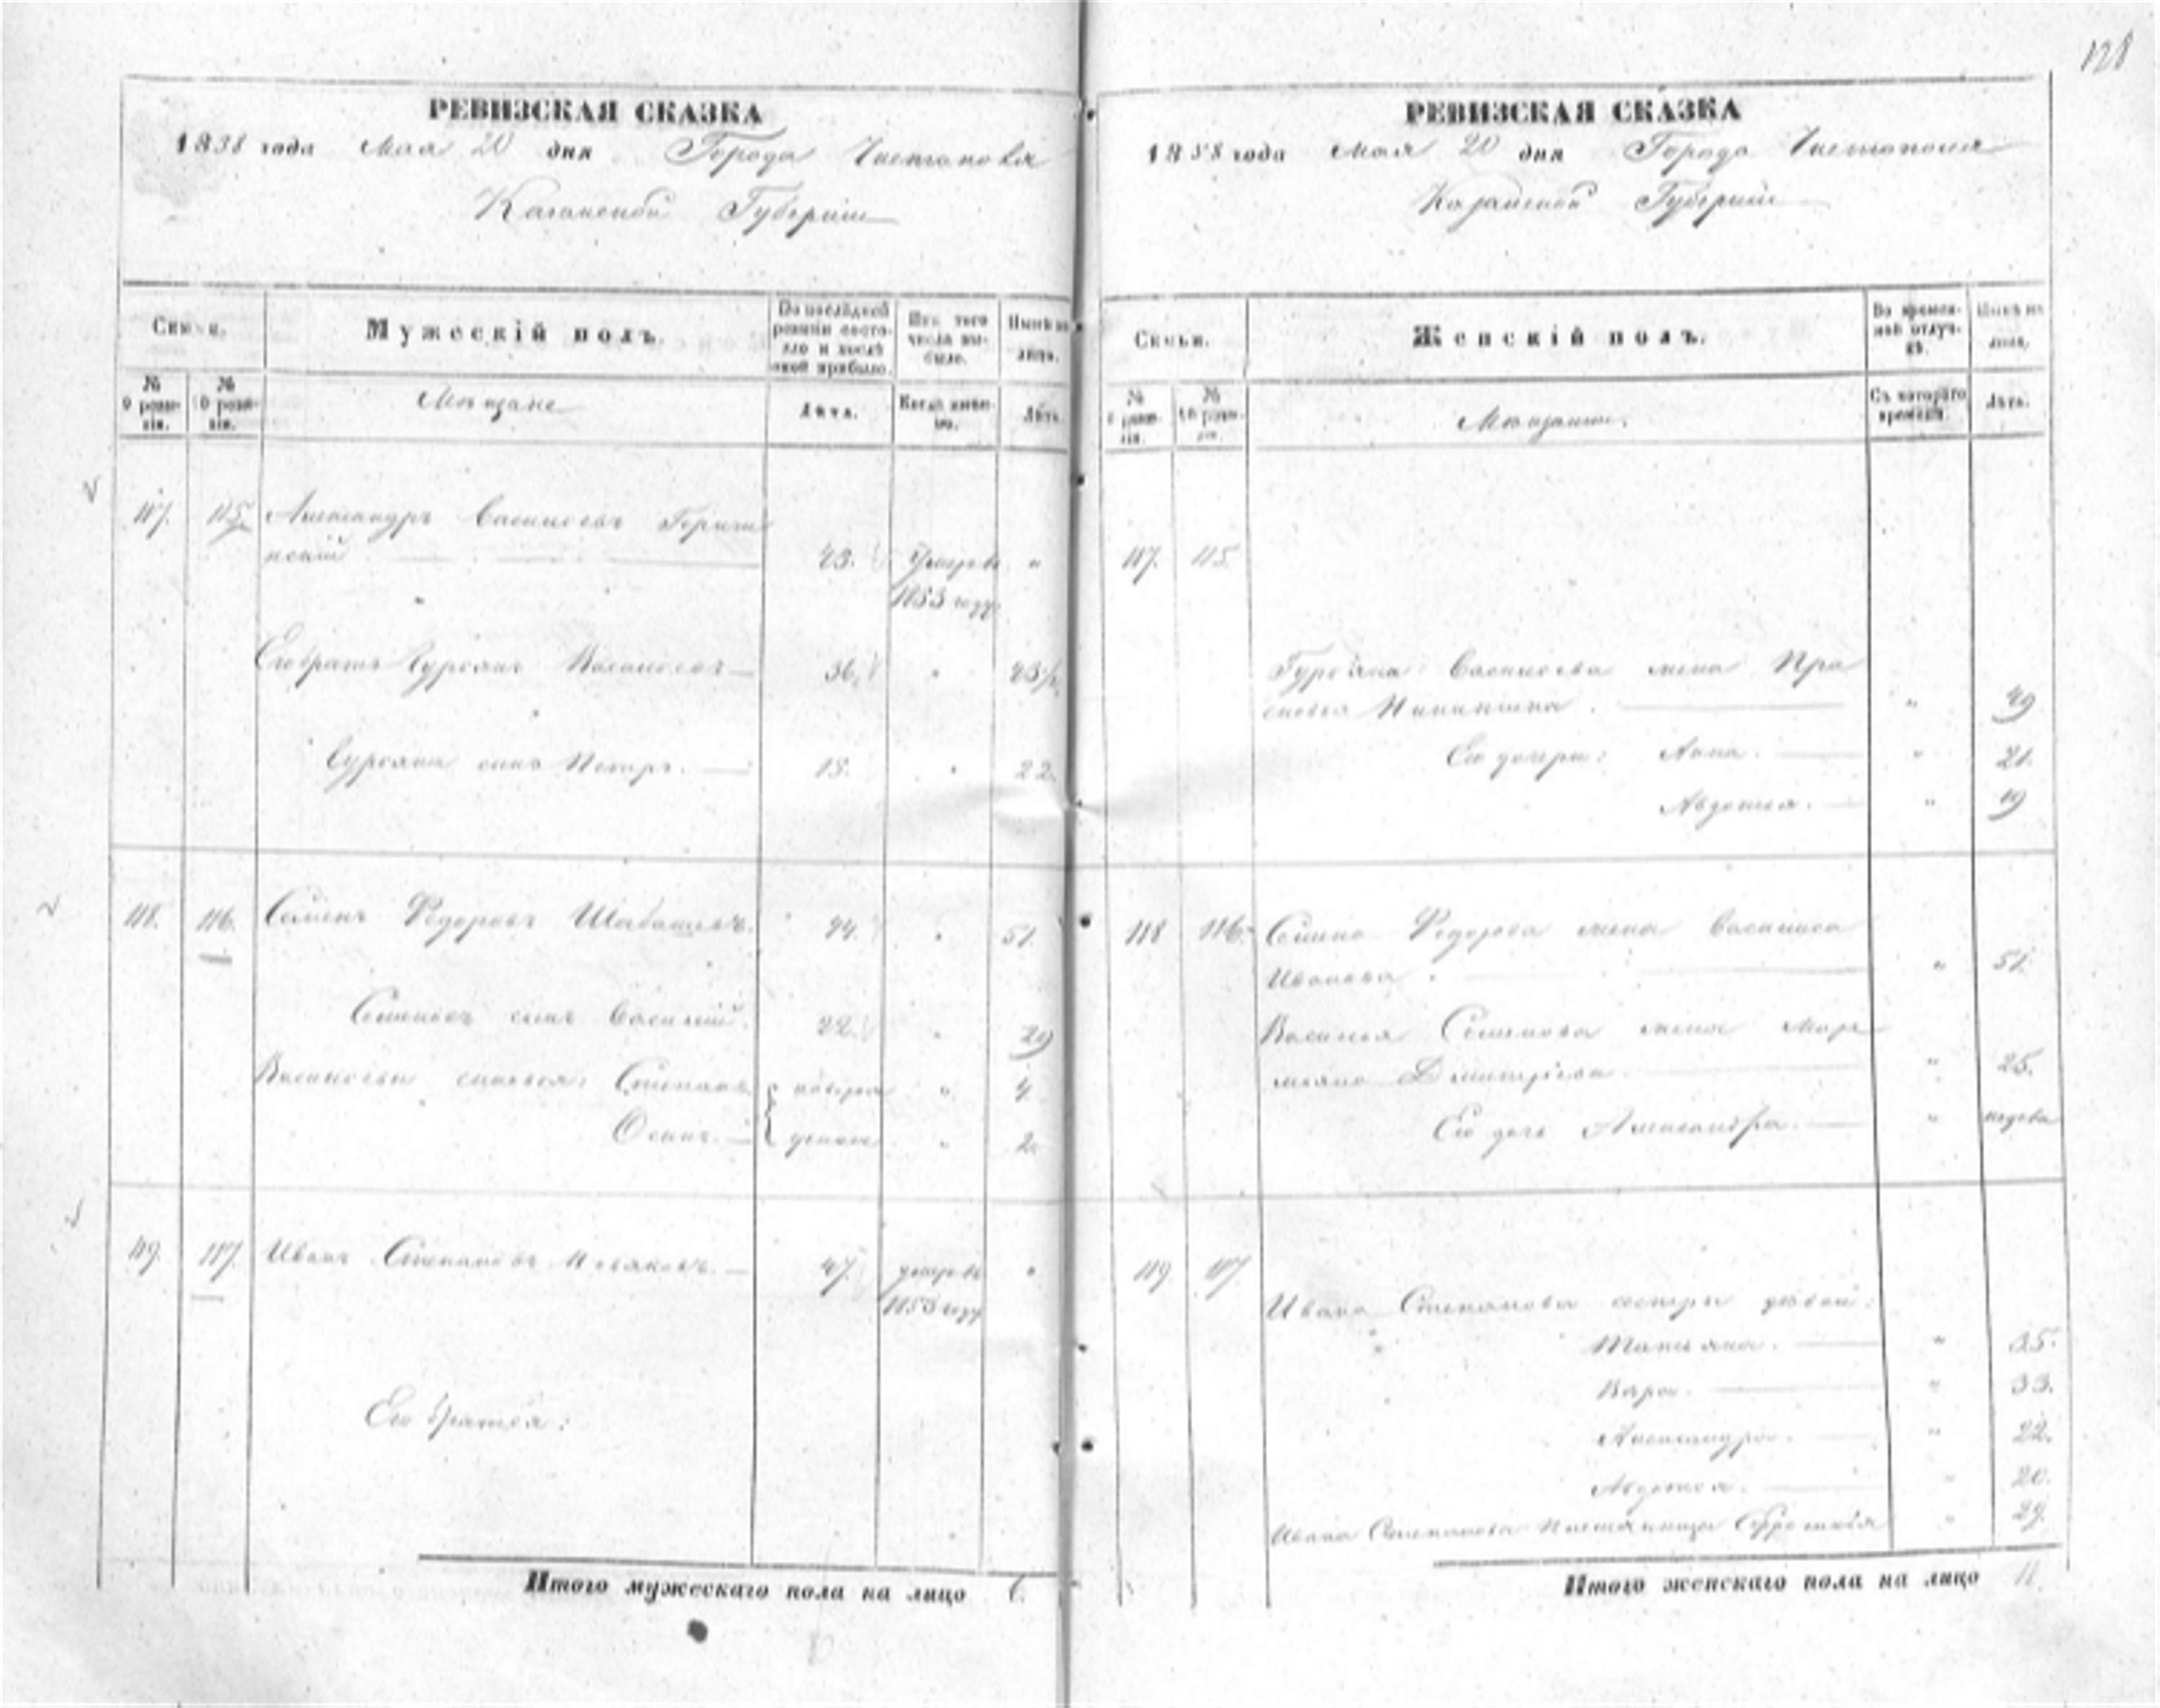 128
РЕВИЗСКАЯ СКАЗКА
1858 года Мая 20 дня Города Чистополя
Казанской Губернии
Семьи.
Мужескій полъ.
По послѣдней ревизіи состояло и послѣ оной прибыло.
Изъ того числа выбыло.
Нынѣ на лицо.
№ 9 ревизіи.
№ 10 ревизіи.
Мѣщане
Лѣта.
Когда именно.
Лѣта.
117. 115. Александръ Васильевъ
нскій 43. Умеръ въ "
1853 году
Его братъ Гурьянъ Васильевъ 36. " 43½
Гурьяна сынъ Петръ. 15. " 22.
118. 116. Семенъ Федоровъ 44. " 51
Семеновъ сынъ Василій. 22. " 29
Васильевы сыновья: Степанъ " 4
Осипъ. " 2.
119. 117. Иванъ Степановъ 47. умеръ въ "
1853 году
Его братья:
Итого мужескаго пола на лицо 6.
РЕВИЗСКАЯ СКАЗКА
1858 года Мая 20 дня Города Чистополя
Казанской Губерніи
Семьи.
Женскій полъ.
Во временной отлучкѣ.
Нынѣ на лицо.
№ 9 ревизіи.
№ 10 ревизіи.
Мѣщане.
Съ котораго времени.
Лѣта.
117. 115.
Гурьяна Васильева жена Пра
сковья Никитина. " 49
Его дочери: Анна. " 21.
Авдотья. " 19
118 116. Семена Федорова жена Василиса
Иванова. " 51.
Василья Семенова жена Марь
Дмитріева " 25.
Его дочь Александра. "
119 117
Ивана Степанова сестры
Татьяна. " 35.
Вѣра. " 33.
Александра. " 22.
Авдотья. " 20.
Ивана Степанова " 29.
Итого женскаго пола на лицо 11.